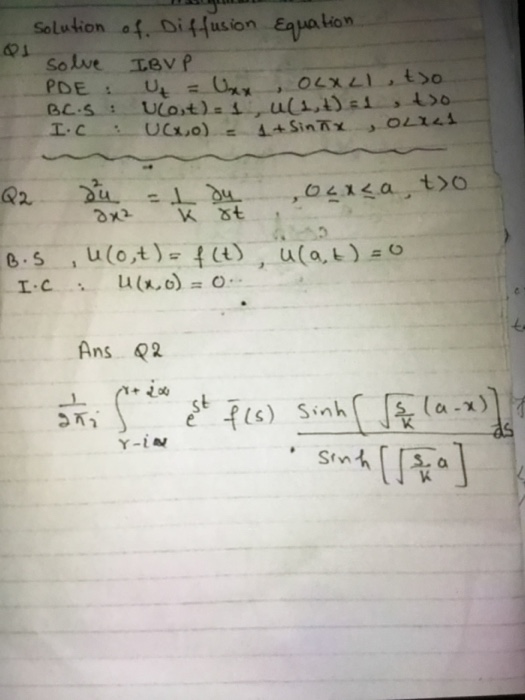 Solution of. Diffusion Equation
Q1
Solve IBVP
PDE : Ut = Uxx , 0<x<1 , t>0
BC.S : U(0,t) = 1 , u(1,t) = 1 , t>0
I.C : U(x,0) = 1 + Sinπx , 0<x<1
Q2 ∂²u/∂x² = 1/K ∂u/∂t , 0≤x≤a, t>0
B.S , U(0,t) = f(t) , U(a,t) = 0
I.C : U(x,0) = 0..
Ans Q2
1/2πi ∫_{r-i∞}^{r+i∞} e^{st} f̄(s) Sinh[√(s/k) (a-x)] / Sinh[√(s/k) a] ds